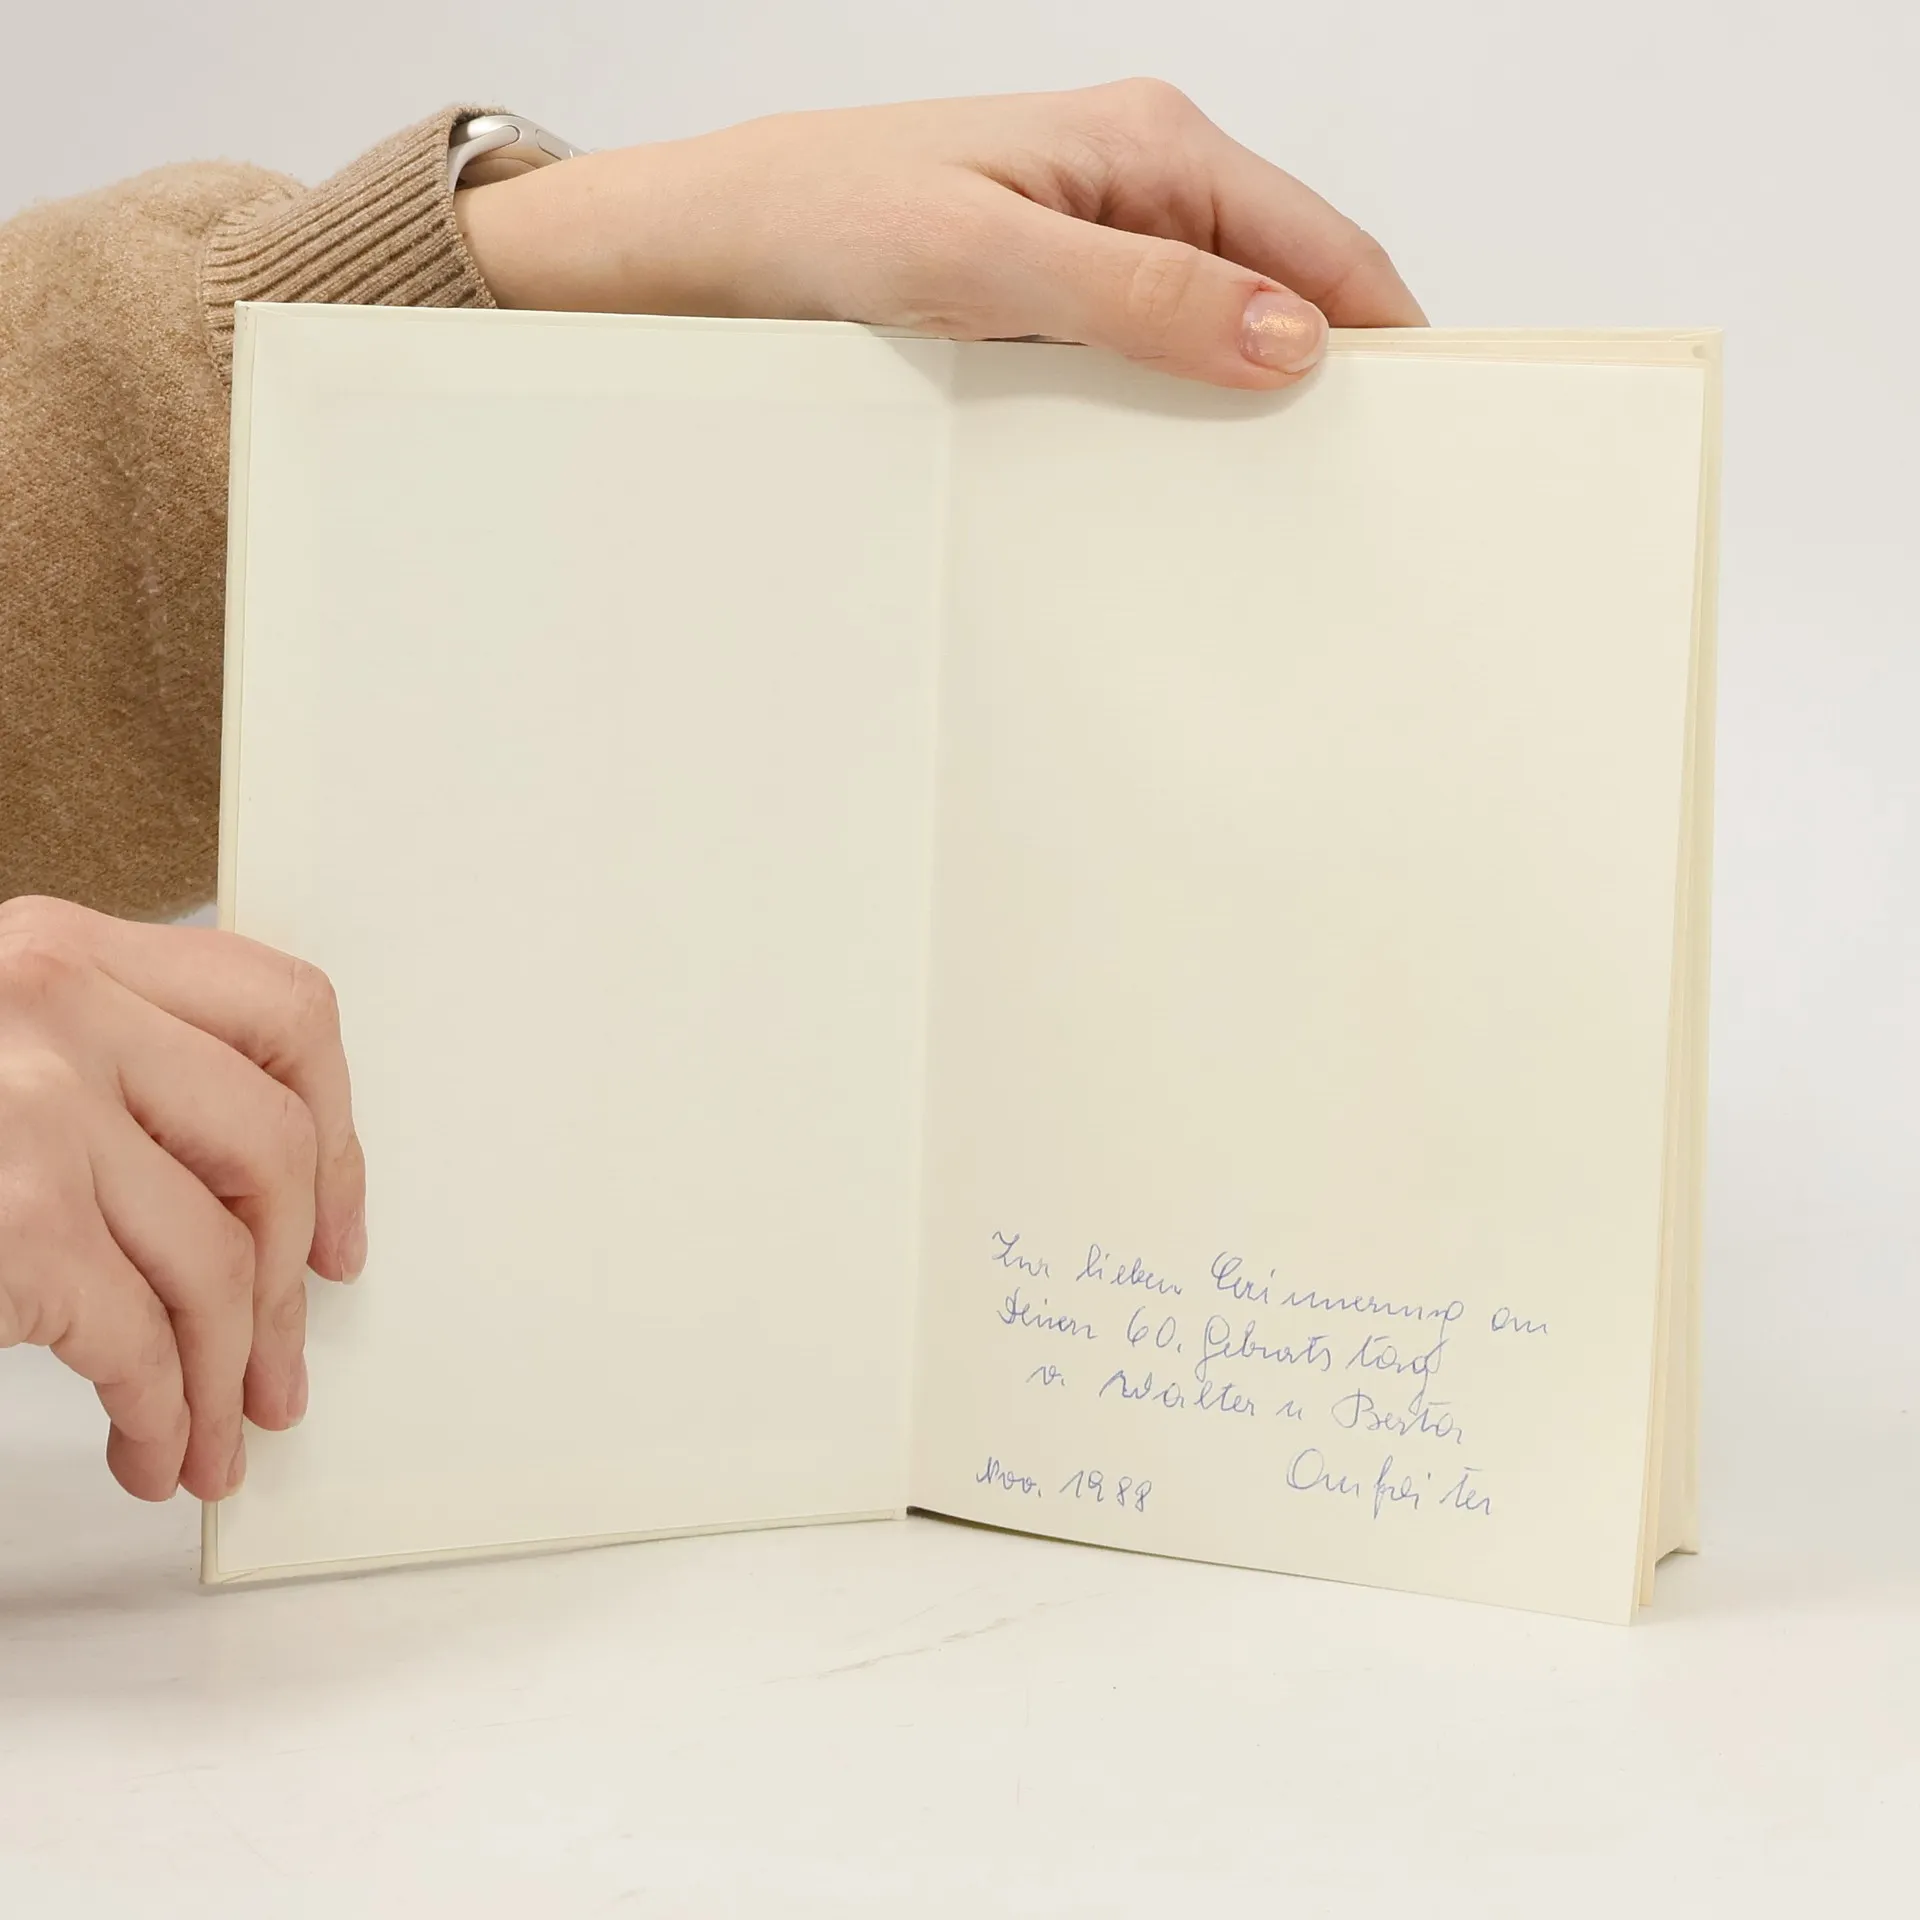 Zur lieben Erinnerung an
Deinen 60. Geburtstag
v. Walter u Berta
Nov. 1988